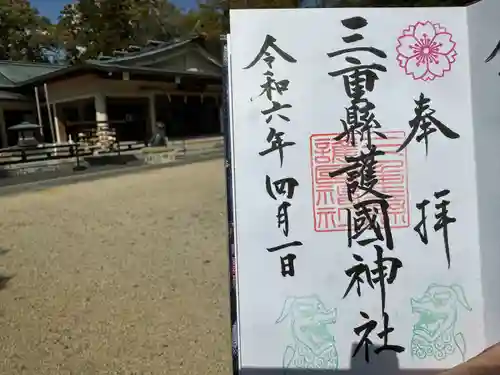 奉拝
三重縣護國神社
令和六年四月一日